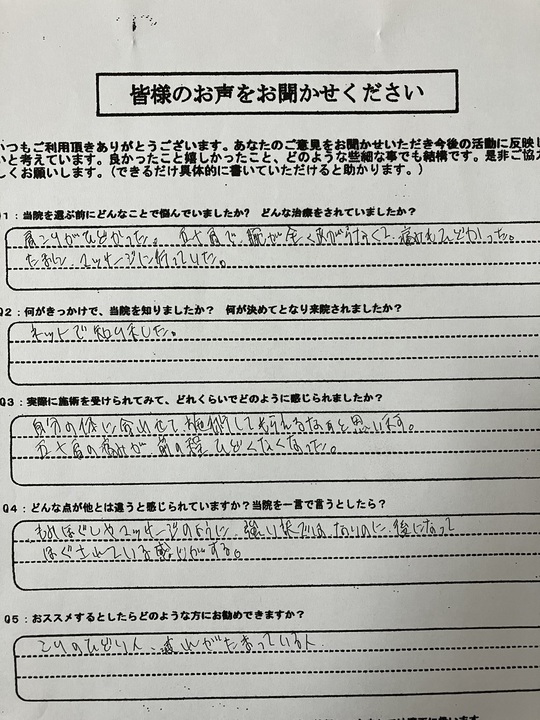 皆様のお声をお聞かせください
いつもご利用頂きありがとうございます。あなたのご意見をお聞かせいただき今後の活動に反映し
いと考えています。良かったこと嬉しかったこと、どのような些細な事でも結構です。是非ご協力
しくお願いします。(できるだけ具体的に書いていただけると助かります。)
1：当院を選ぶ前にどんなことで悩んでいましたか？ どんな治療をされていましたか？
肩こりがひどかった。五十肩で、腕が全くあがらなくて、痛みもひどかった。
たまに、マッサージに行っていた。
Q2：何がきっかけで、当院を知りましたか？ 何が決めてとなり来院されましたか？
ネットで知りました。
Q3：実際に施術を受けられてみて、どれくらいでどのように感じられましたか？
自分の体に合わせて施術してもらえるなぁと思います。
五十肩の痛みが、前の程ひどくなくなった。
Q4：どんな点が他とは違うと感じられていますか？当院を一言で言うとしたら？
もみほぐしやマッサージのように、強い
ではないのに、後になって
ほぐされている感じがする。
Q5：おススメするとしたらどのような方にお勧めできますか？
こりのひどい人、疲れがたまっている人